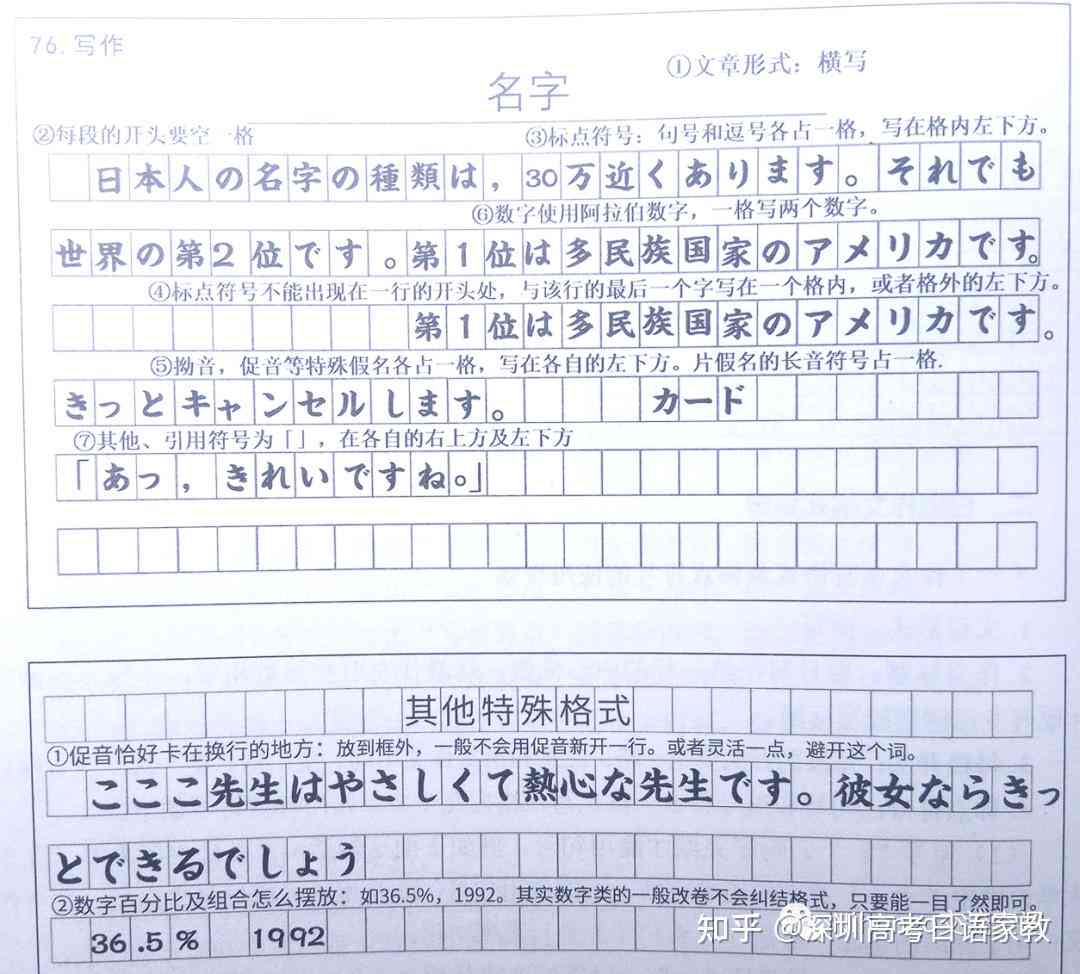 76.写作
①文章形式：横写
名字
②每段的开头要空一格
③标点符号：句号和逗号各占一格，写在格内左下方。
日本人の名字の種類は，30万近くあります。それでも
⑥数字使用阿拉伯数字，一格写两个数字。
世界の第2位です。第1位は多民族国家のアメリカです。
④标点符号不能出现在一行的开头处，与该行的最后一个字写在一个格内，或者格外的左下方。
第1位は多民族国家のアメリカです。
⑤拗音，促音等特殊假名各占一格，写在各自的左下方。片假名的长音符号占一格.
きっとキャンセルします。 カード
⑦其他、引用符号为「」，在各自的右上方及左下方
「あっ，きれいですね。」
其他特殊格式
①促音恰好卡在换行的地方：放到框外，一般不会用促音新开一行。或者灵活一点，避开这个词。
こここ先生はやさしくて熱心な先生です。彼女ならきっ
とできるでしょう
②数字百分比及组合怎么摆放：如36.5%，1992。其实数字类的一般改卷不会纠结格式，只要能一目了然即可。
36.5% 1992
知乎 @深圳高考日语家教